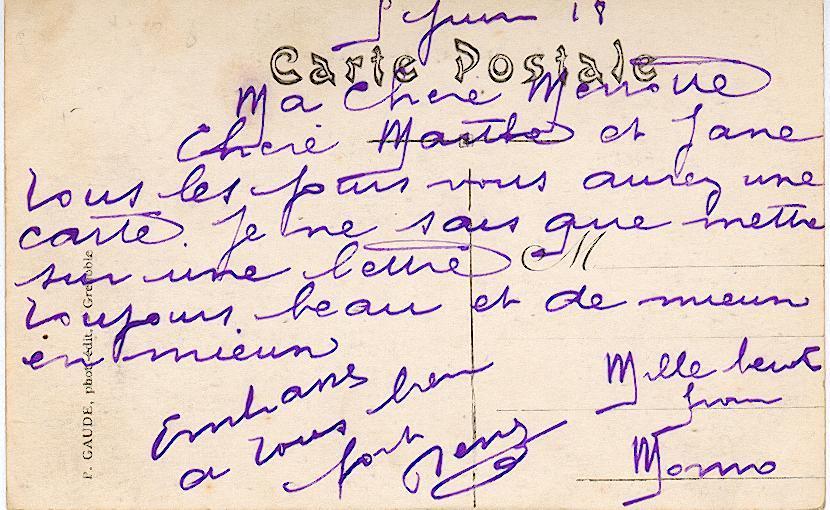 5 Juin 18
Carte Postale
Ma Chere
Cheré Marthe et Jane
tous les jours vous aurez une
carte. Je ne sais que mettre
sur une lettre
M
toujours beau et de mieux
en mieux
Embrasse
a tous bien
fort
Mille
from
P. GAUDE, phot.-édit., Grenoble